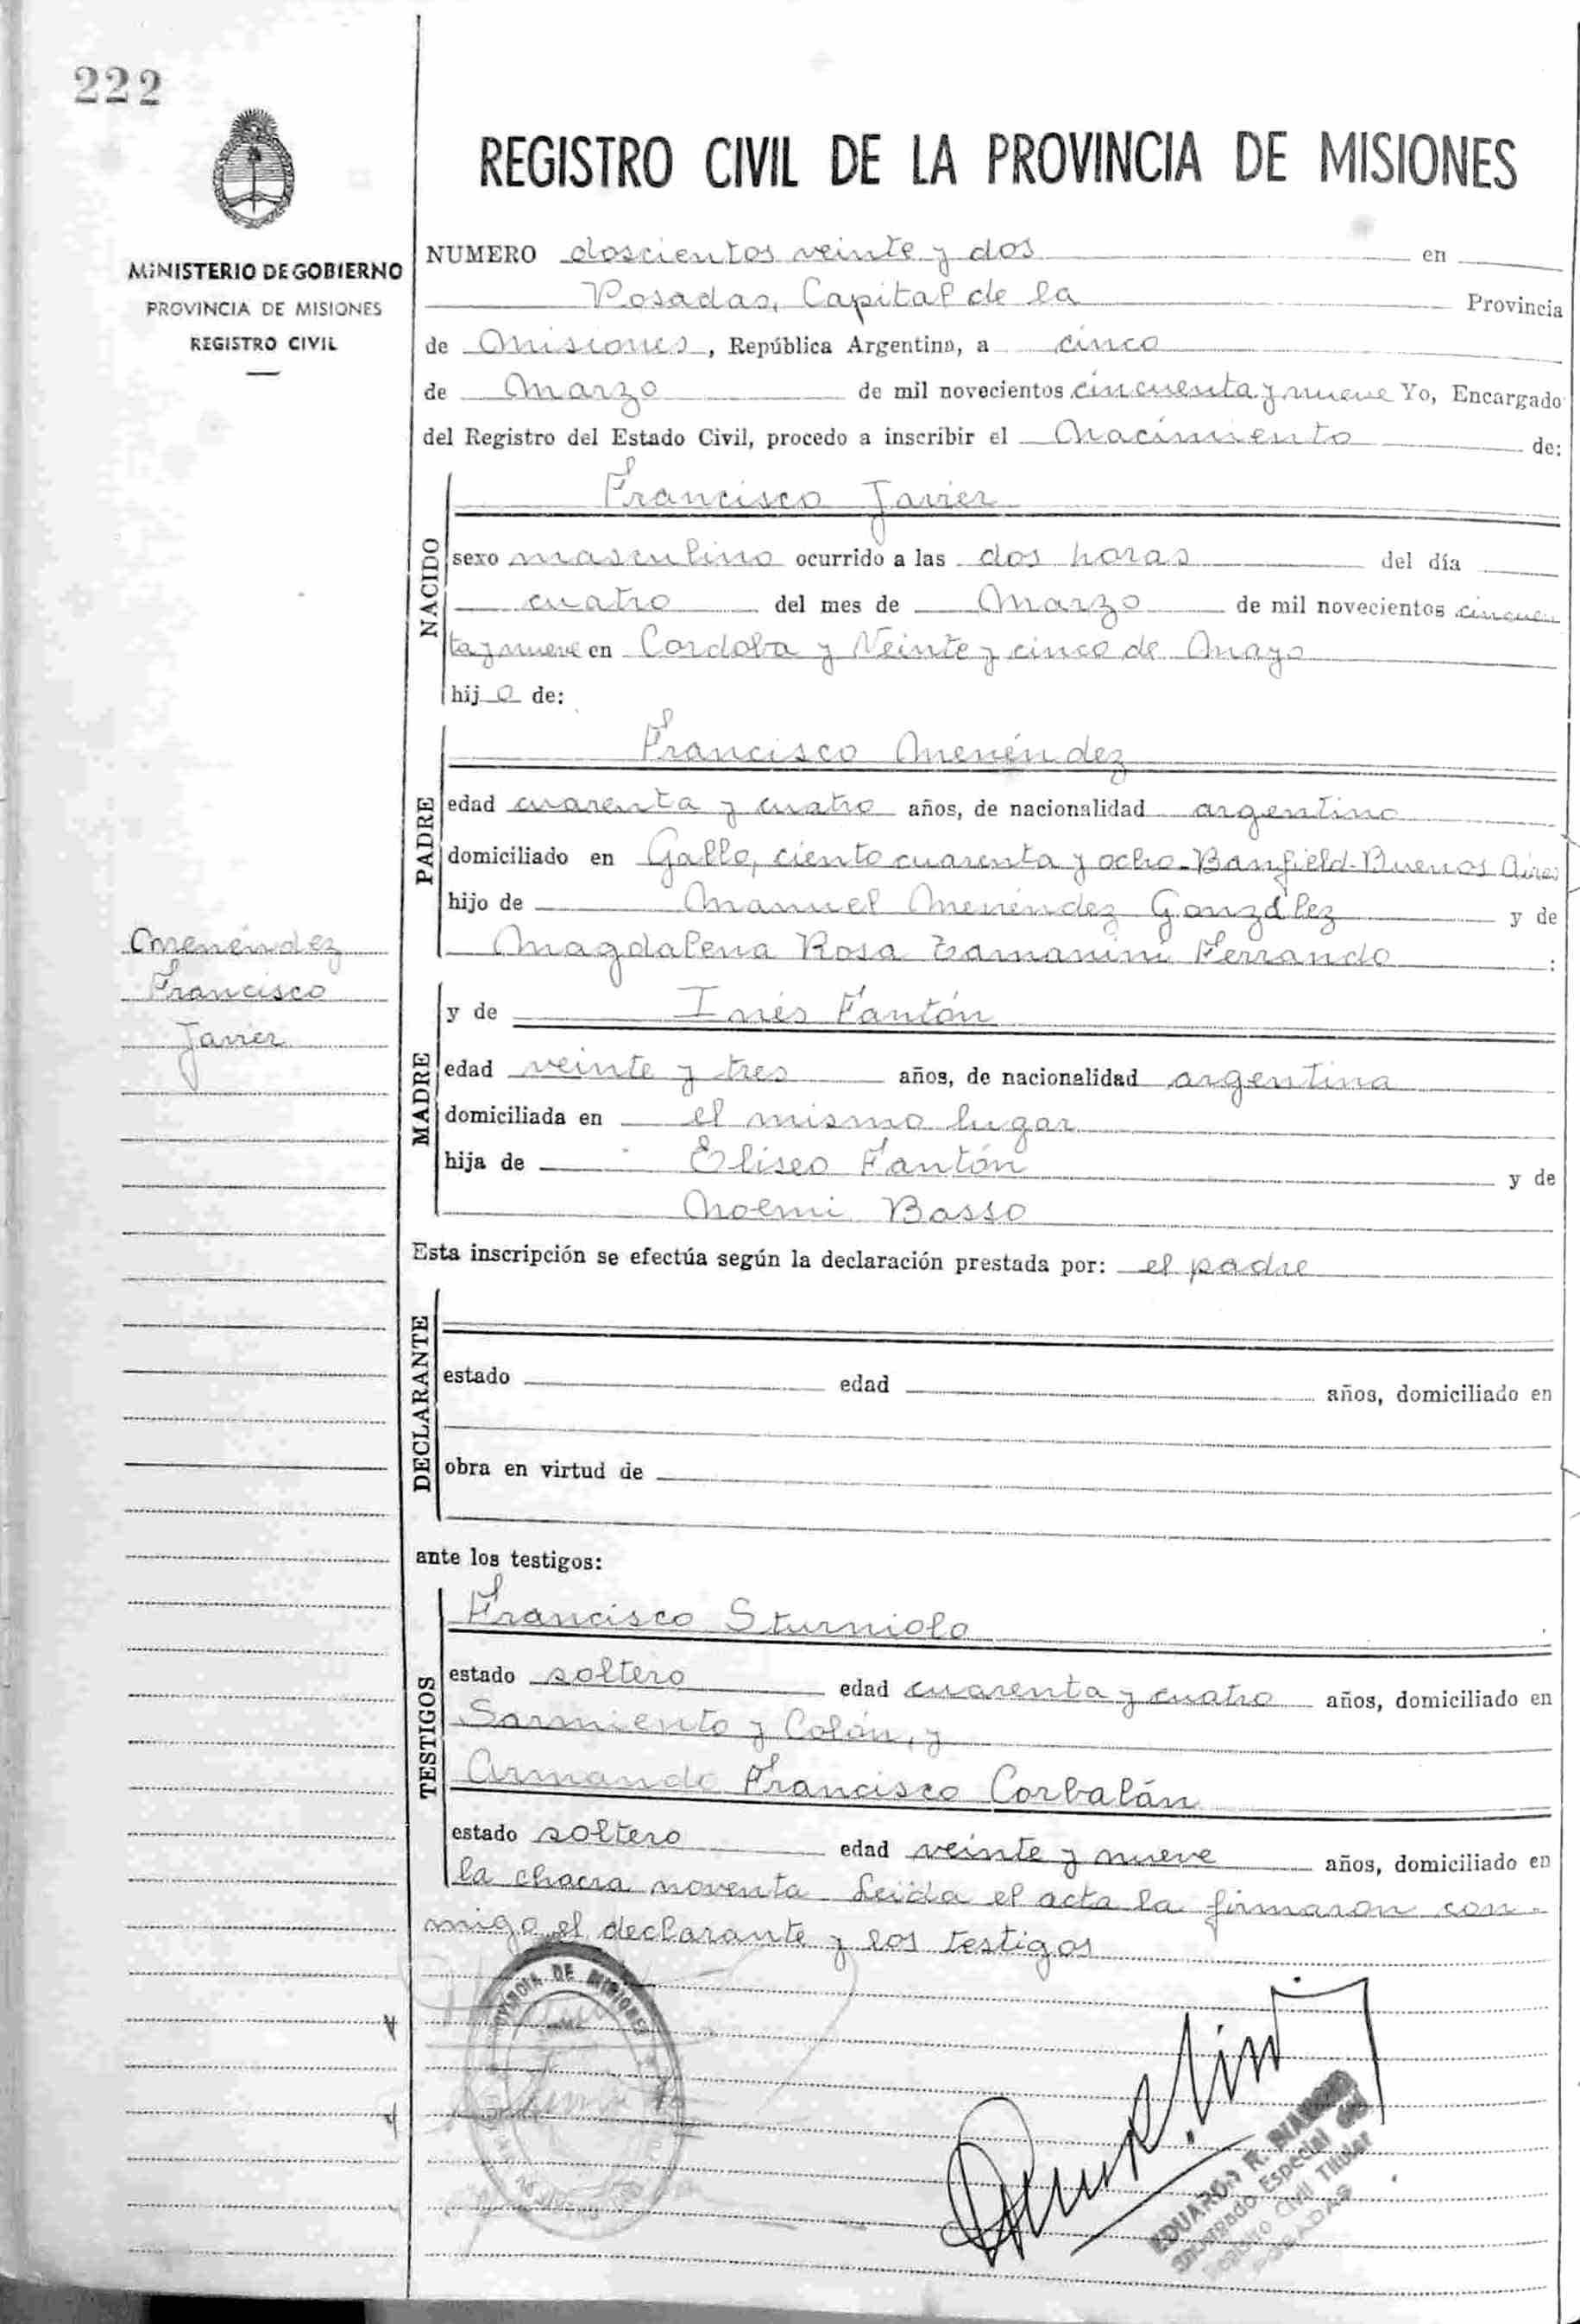 222
REGISTRO CIVIL DE LA PROVINCIA DE MISIONES
MINISTERIO DE GOBIERNO
PROVINCIA DE MISIONES
REGISTRO CIVIL
NUMERO doscientos veinte y dos en
Posadas, Capital de la Provincia
de Misiones, República Argentina, a cinco
de Marzo de mil novecientos cincuenta y nueve Yo, Encargado
del Registro del Estado Civil, procedo a inscribir el Nacimiento de:
NACIDO
Francisco Javier
sexo masculino ocurrido a las dos horas del día
cuatro del mes de Marzo de mil novecientos cincuen
ta y nueve en Cordoba y Veinte y cinco de Mayo
hijo de:
PADRE
Francisco Menéndez
edad cuarenta y cuatro años, de nacionalidad argentino
domiciliado en Gallo, ciento cuarenta y ocho-Banfield-Buenos Aires
hijo de Manuel Menéndez González y de
Magdalena Rosa Zamanini Ferrando :
Menéndez
Francisco
Javier
MADRE
y de Inés Fantón
edad veinte y tres años, de nacionalidad argentina
domiciliada en el mismo lugar
hija de Eliseo Fantón y de
Noemi Basso
Esta inscripción se efectúa según la declaración prestada por: el padre
DECLARANTE
estado edad años, domiciliado en
obra en virtud de
ante los testigos:
TESTIGOS
Francisco Sturniolo
estado soltero edad cuarenta y cuatro años, domiciliado en
Sarmiento y Colón, y
Armando Francisco Corbalán
estado soltero edad veinte y nueve años, domiciliado en
la chacra noventa. Leída el acta la firmaron con-
migo el declarante y los testigos
DE MISIONES
EDUARDO R.
Encargado Especial
Civil Titular
POSADAS